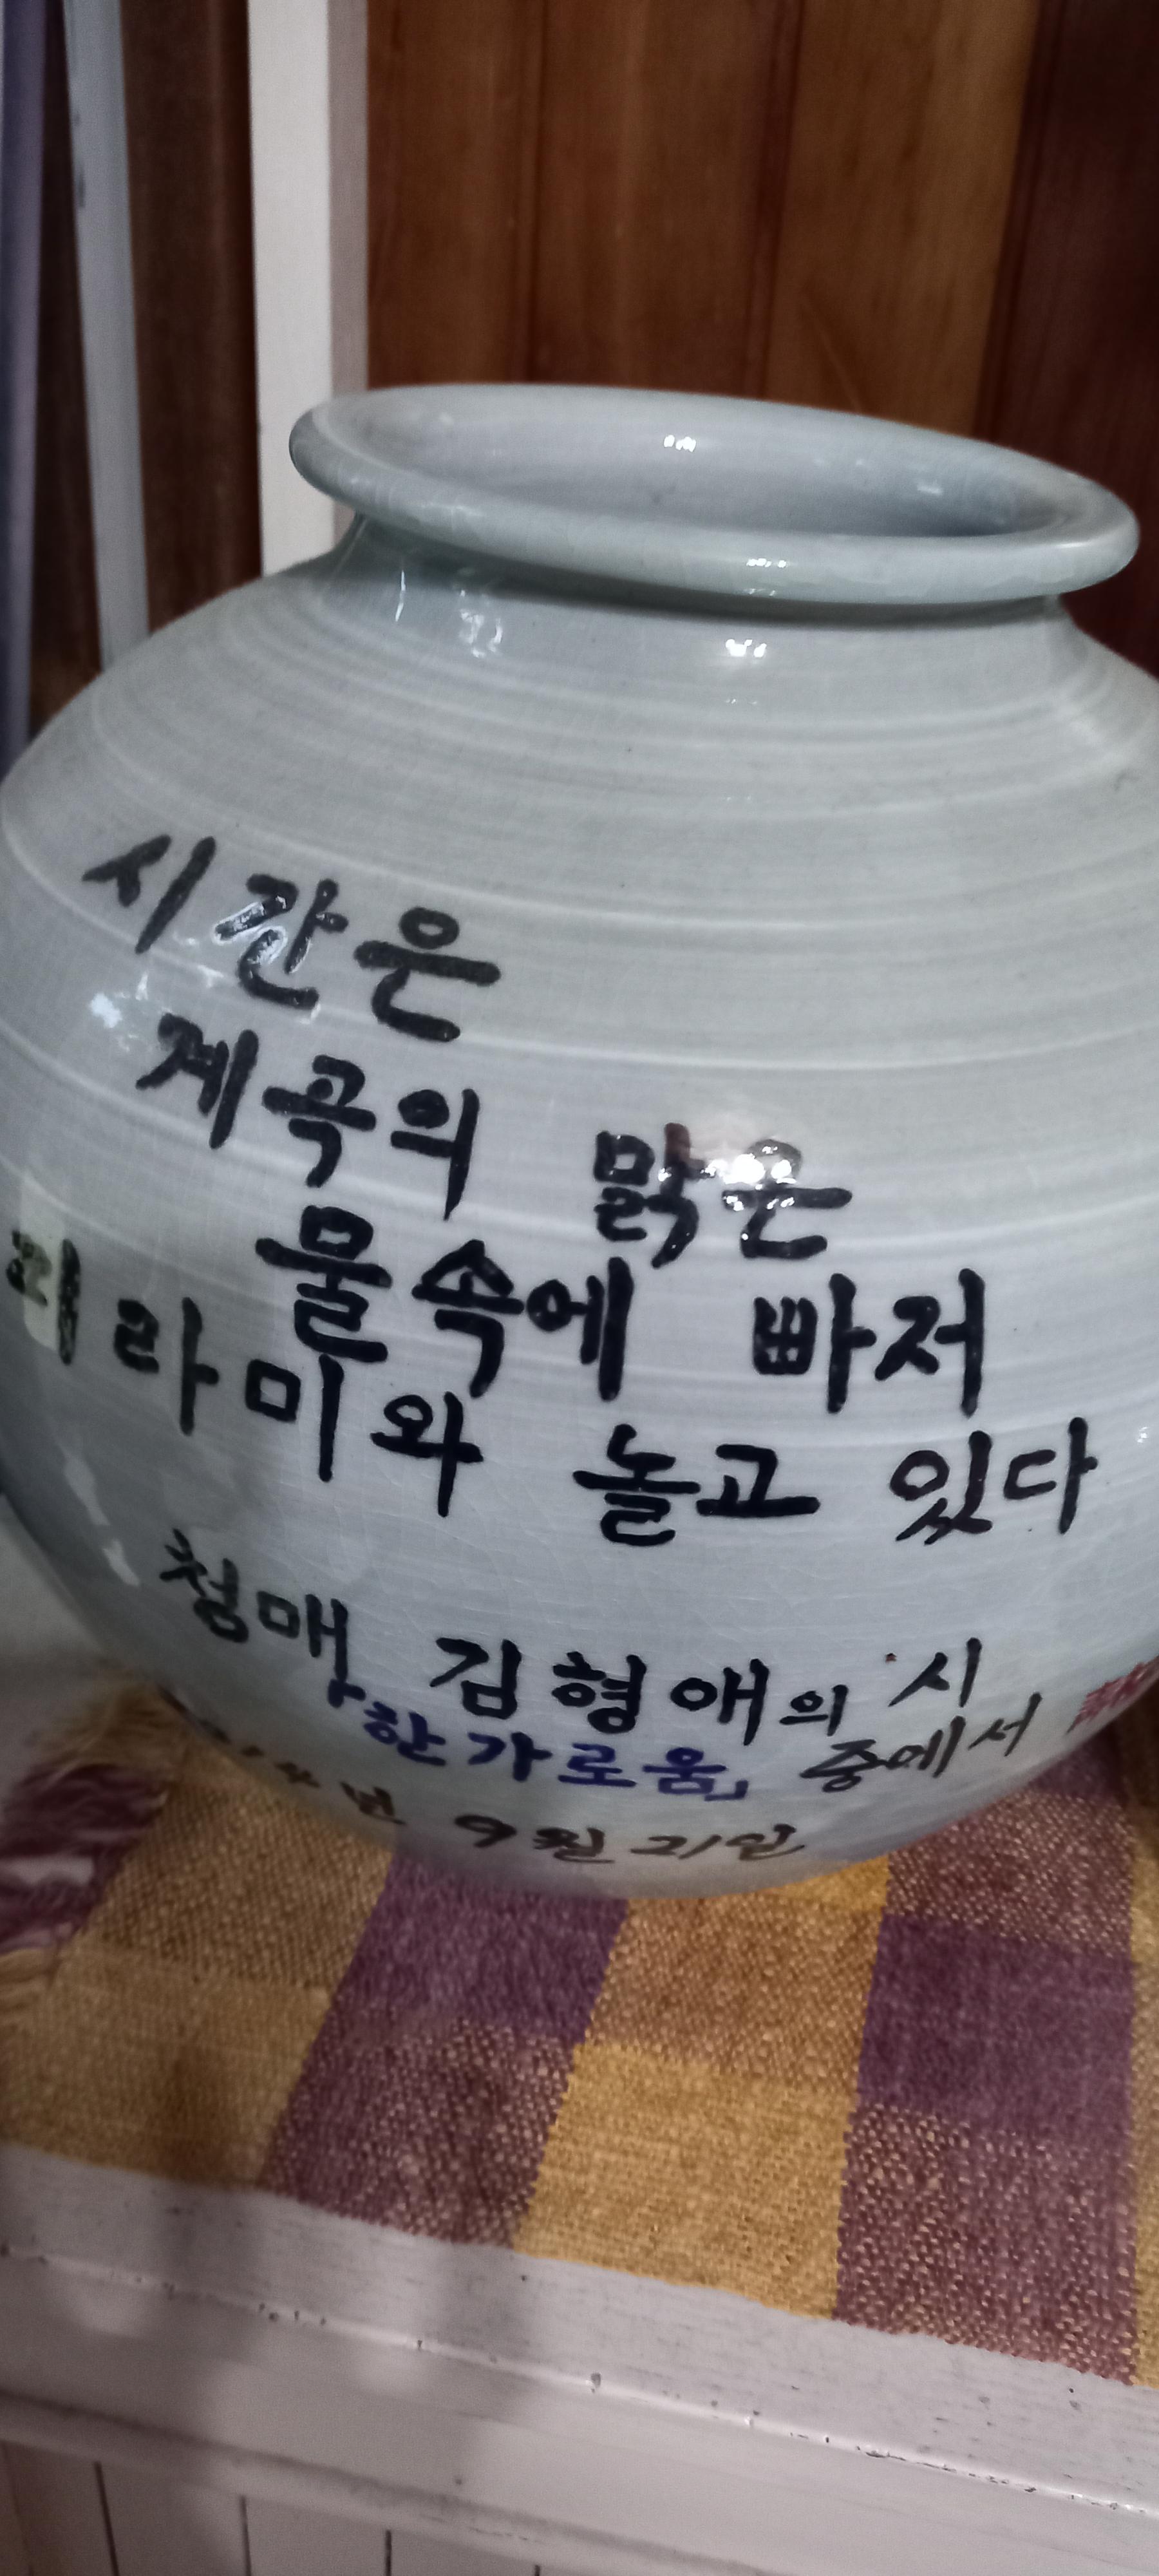 시간은
계곡의 맑은
물속에 빠저
피라미와 놀고 있다
청매 김형애의 시
「한가로움」 중에서
9월 21일